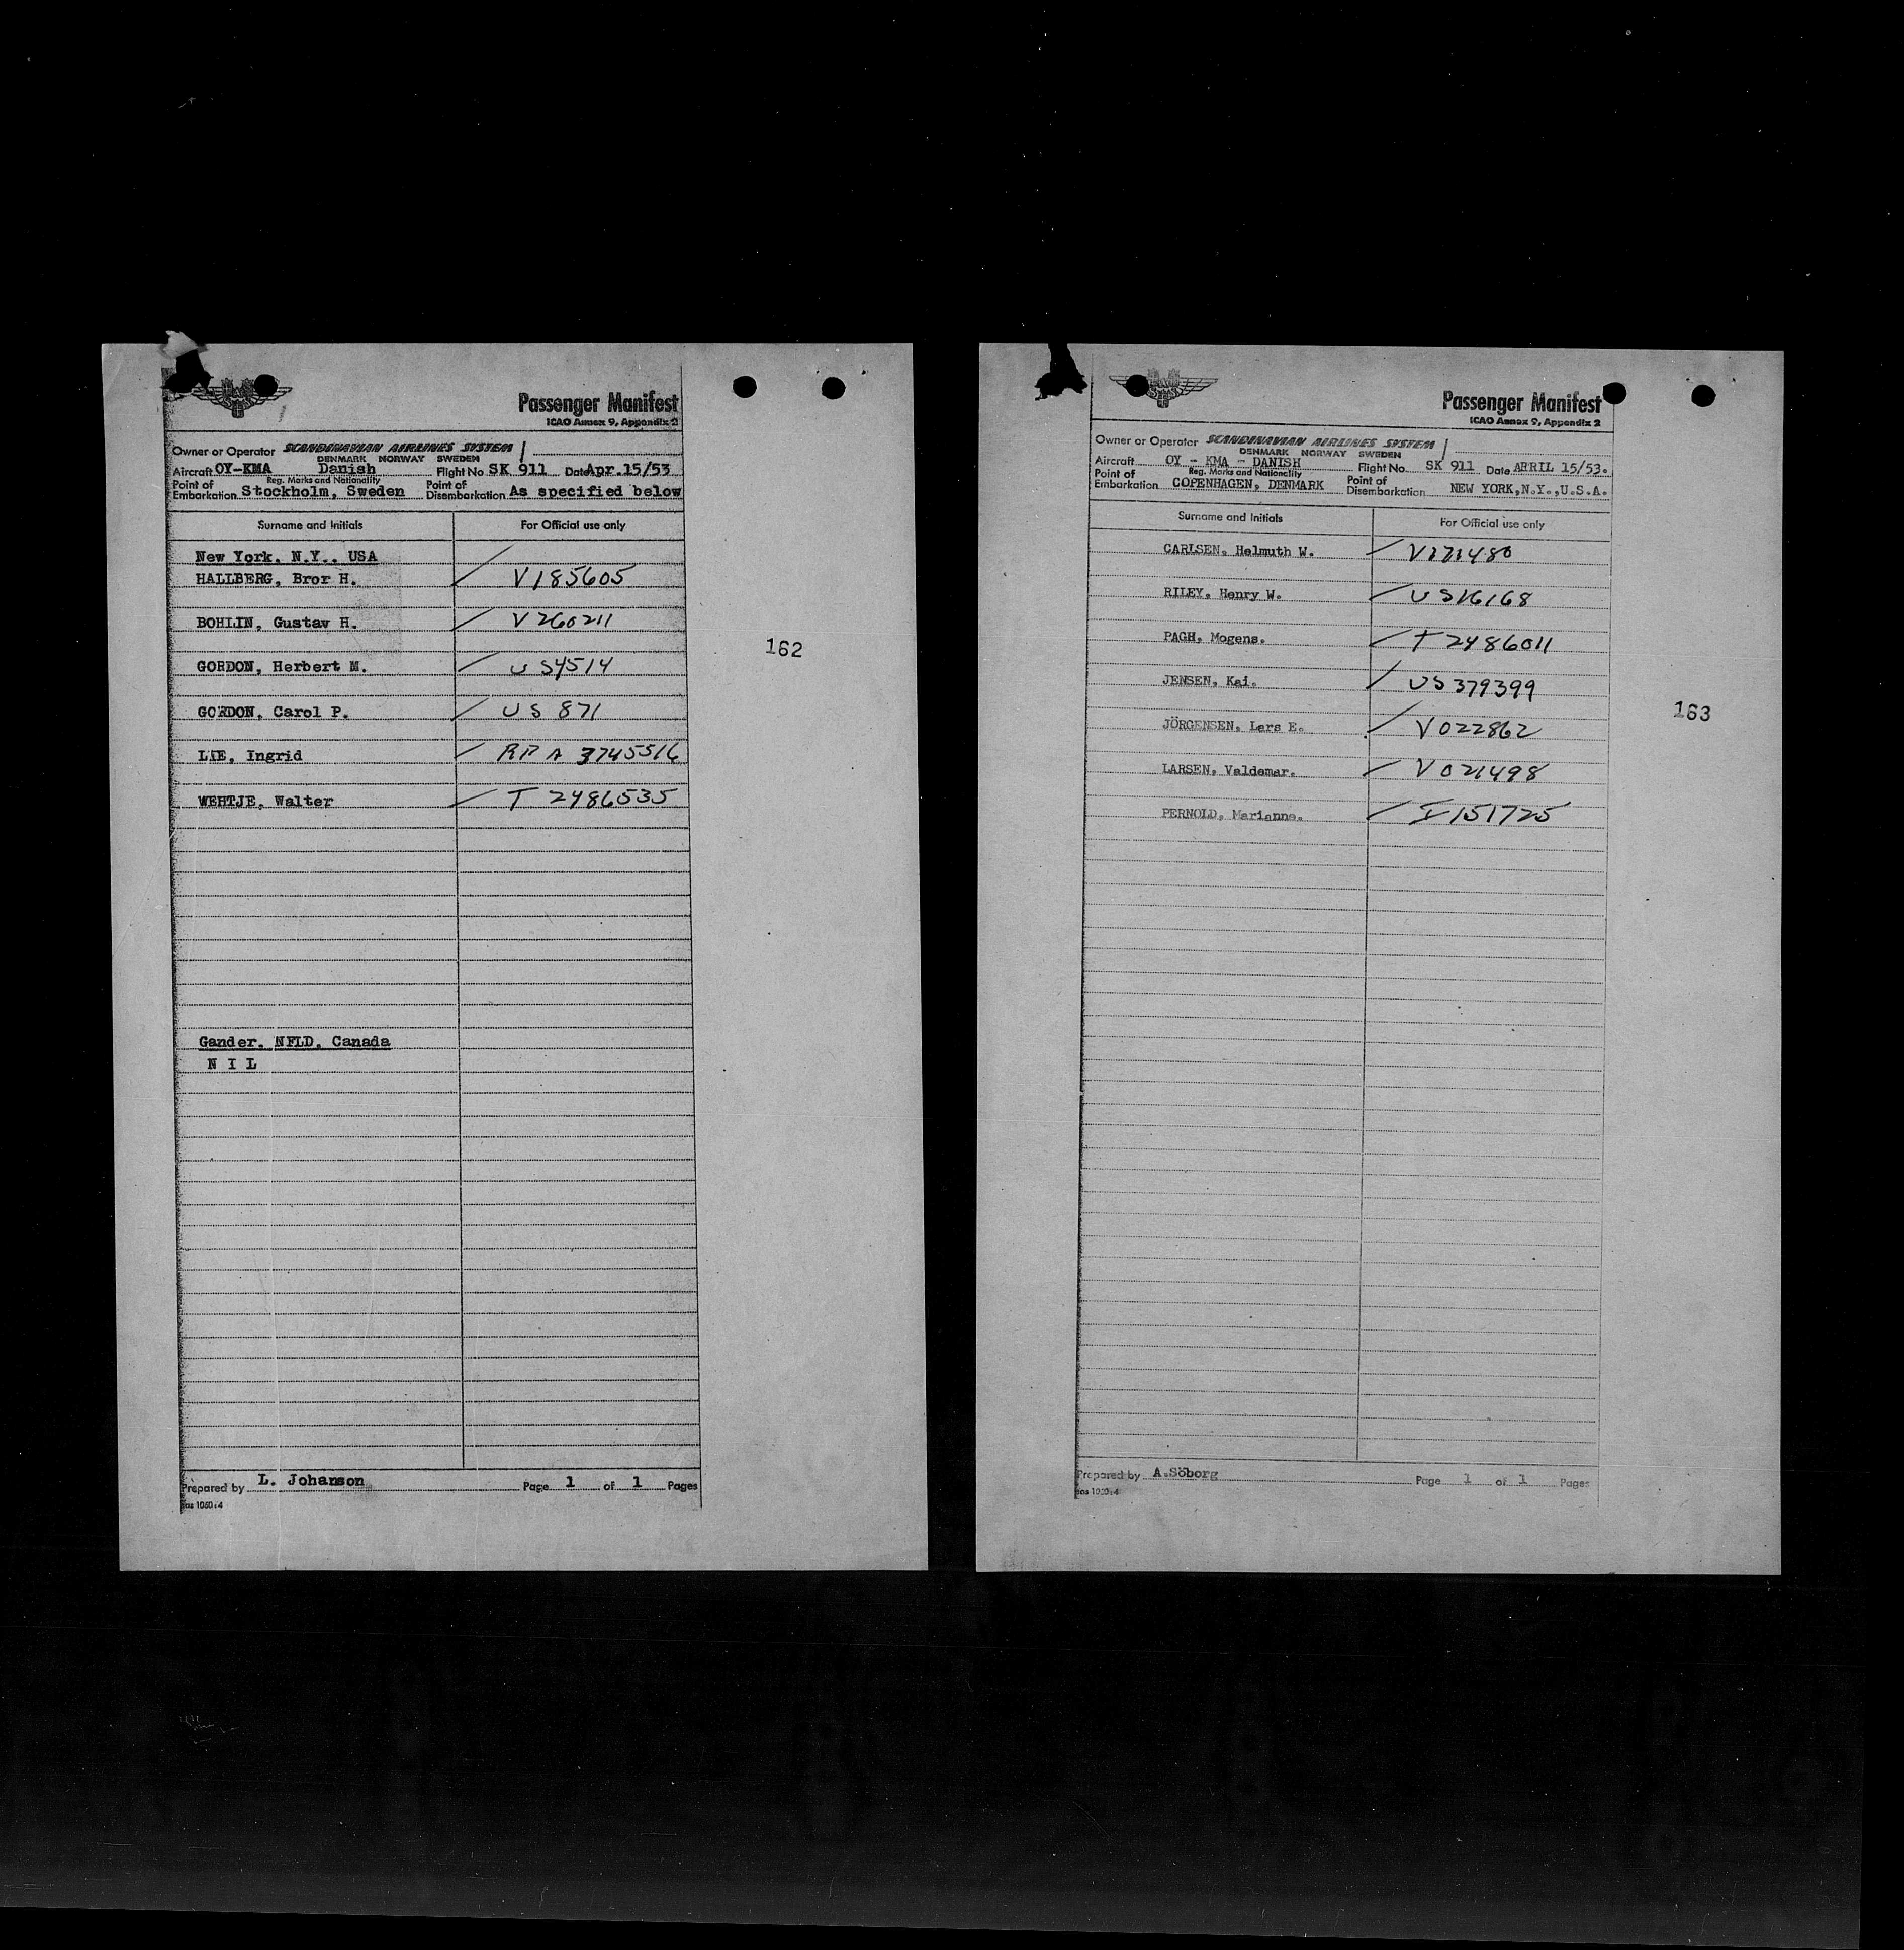 Passenger Manifest
ICAO Annex 9, Appendix 2
Owner or Operator SCANDINAVIAN AIRLINES SYSTEM
DENMARK NORWAY SWEDEN
Aircraft OY-KMA Danish Flight No SK 911 Date Apr.15/53
Reg. Marks and Nationality
Point of Embarkation Stockholm, Sweden Point of Disembarkation As specified below
Surname and Initials For Official use only
New York, N.Y., USA
HALLBERG, Bror H. V185605
BOHLIN, Gustav H. V260211
GORDON, Herbert M. US4514
GORDON, Carol P. US 871
LIE, Ingrid RP A 3745516
WEHTJE, Walter T 2486535
162
Gander, NFLD, Canada
N I L
Prepared by L. Johanson Page 1 of 1 Pages
sas 1060:4
Passenger Manifest
ICAO Annex 9, Appendix 2
Owner or Operator SCANDINAVIAN AIRLINES SYSTEM
DENMARK NORWAY SWEDEN
Aircraft OY - KMA - DANISH Flight No. SK 911 Date APRIL 15/53.
Reg. Marks and Nationality
Point of Embarkation COPENHAGEN, DENMARK Point of Disembarkation NEW YORK,N.Y.,U.S.A.
Surname and Initials For Official use only
CARLSEN, Helmuth W. V171480
RILEY, Henry W. US16168
PAGH, Mogens. T 2486011
JENSEN, Kai. US 379399
JÖRGENSEN, Lars E. V022862
LARSEN, Valdemar. V021498
PERNOLD, Marianne. I151725
163
Prepared by A.Söborg Page 1 of 1 Pages